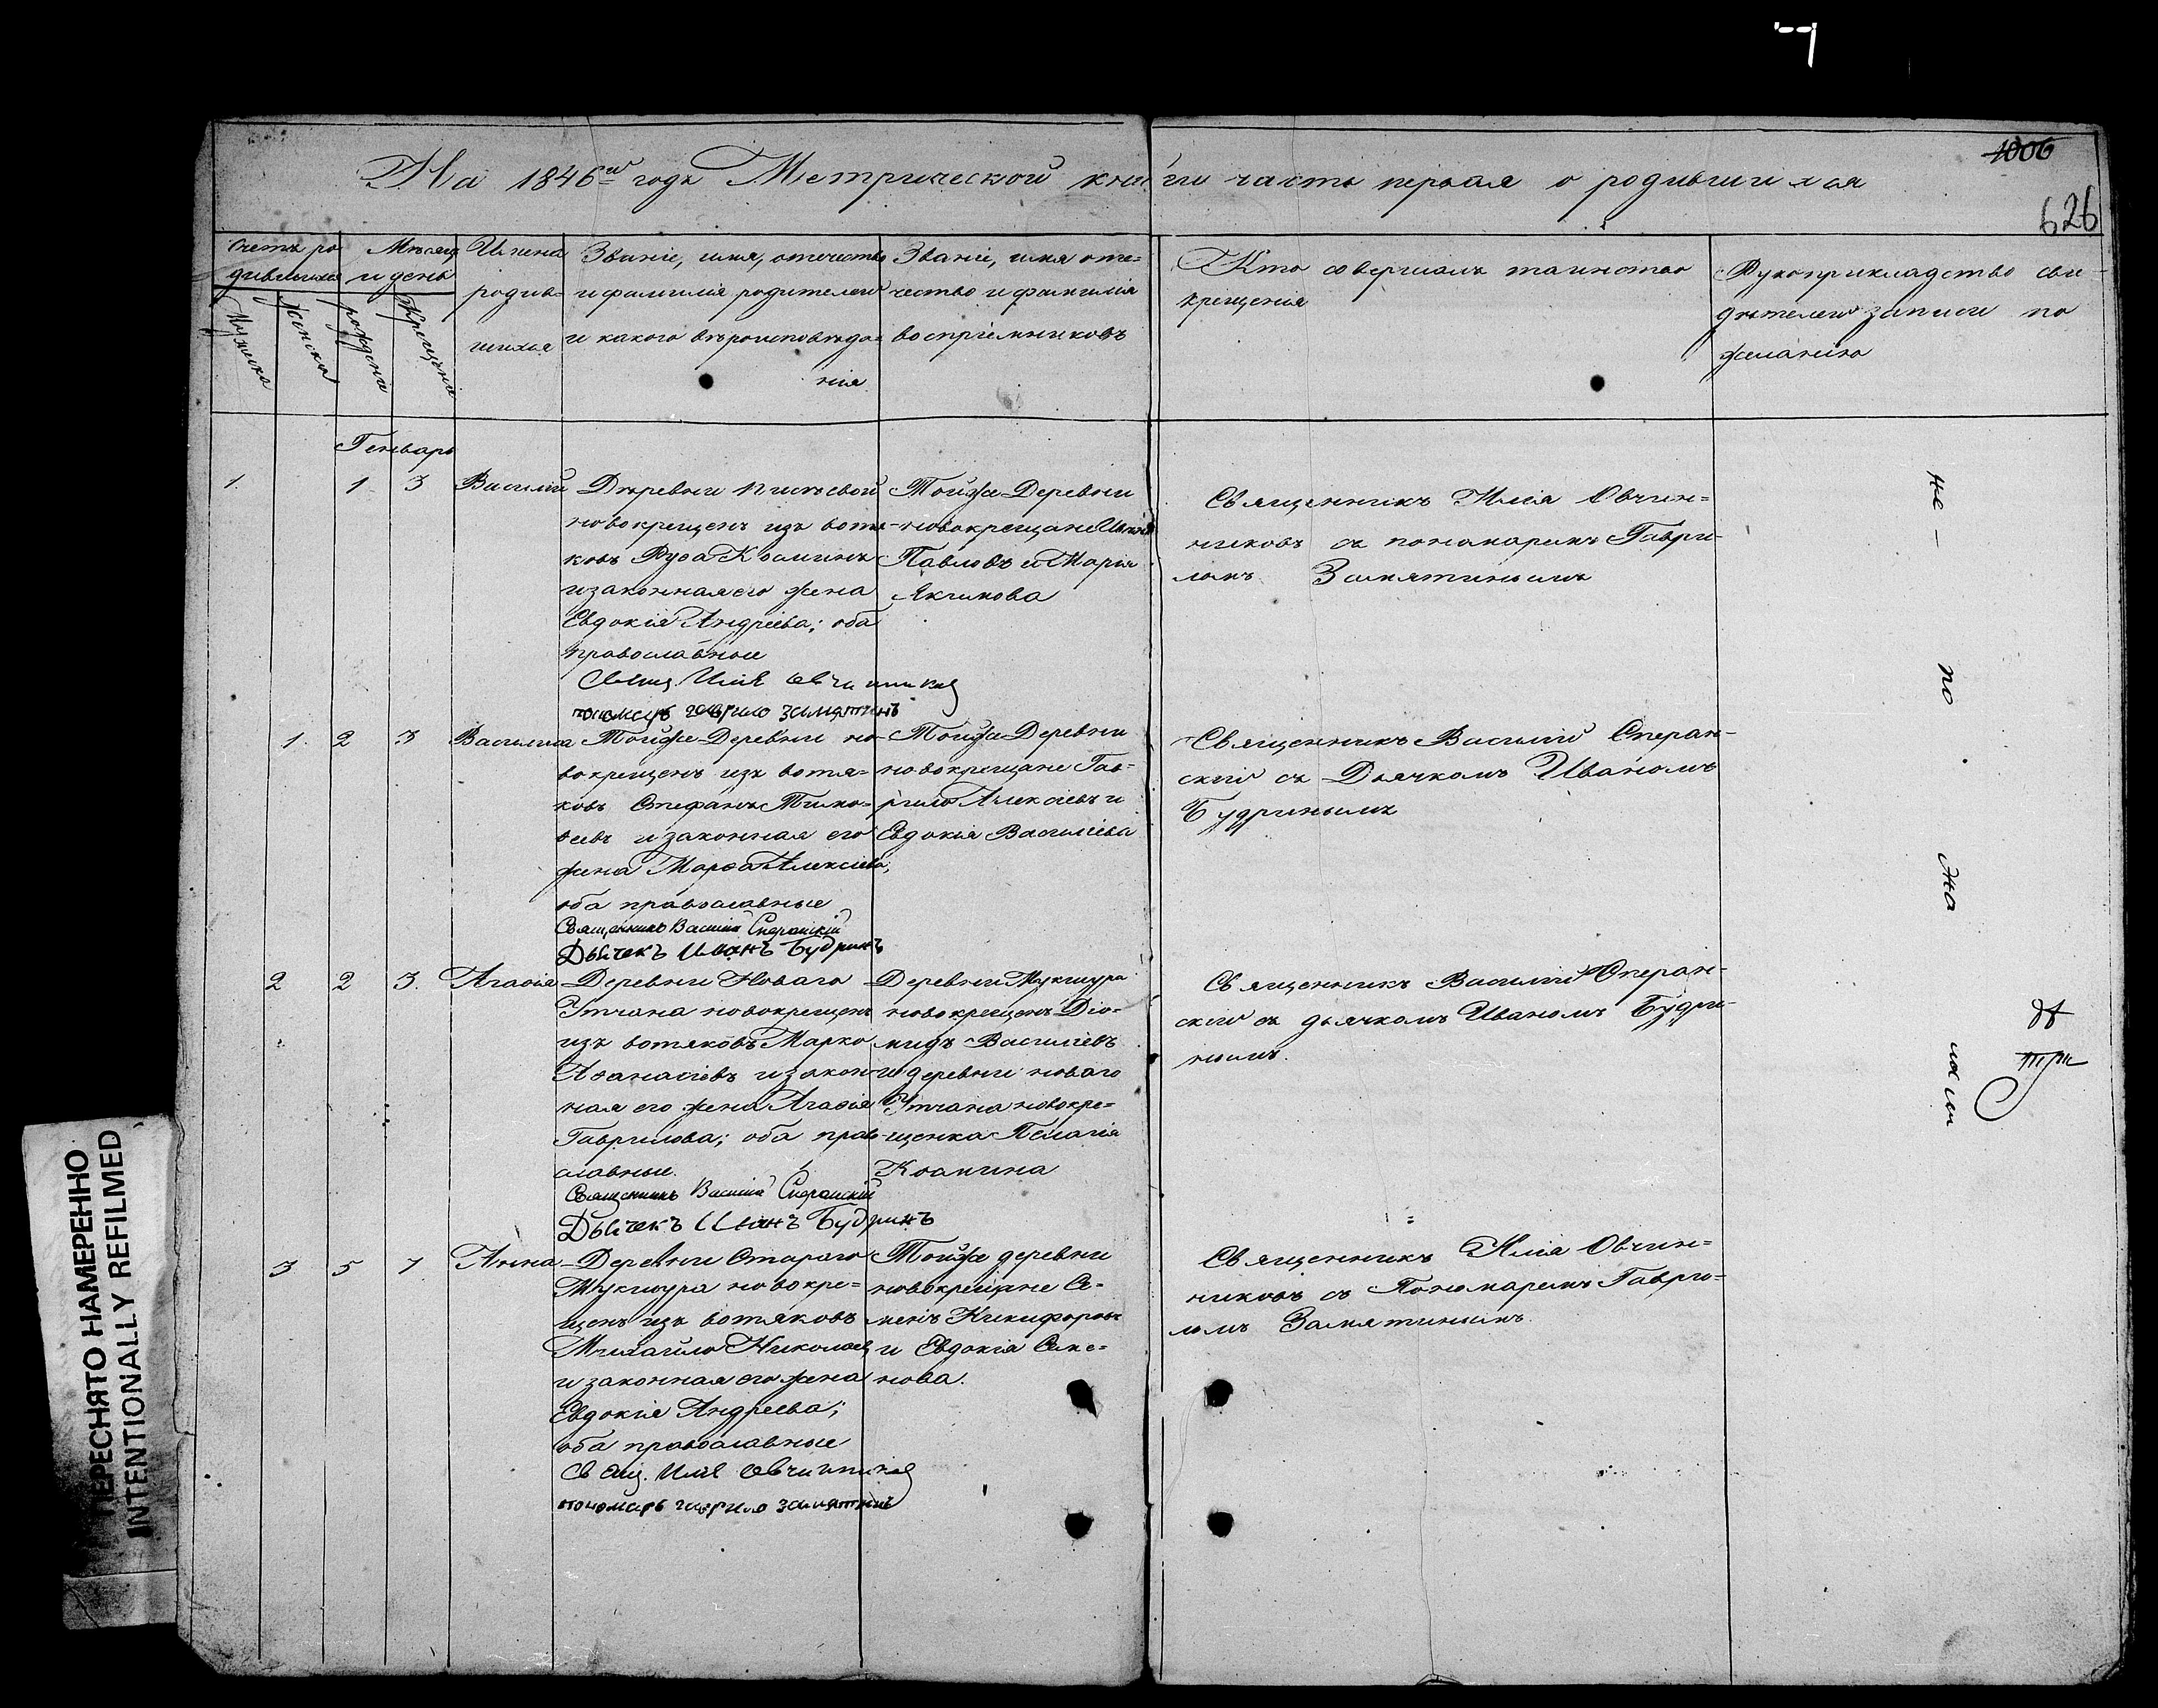 1006
626
На 1846й годъ Метрической книги часть первая о родившихся
Счетъ ро
дившихся
Мужеска
Женска
Месяцъ
и день
рождения
Крещения
Имена
родив-
шихся
Званіе, имя, отечество
и фамилія родителей
и какого вероисповеда=
нія
Званіе, имя оте=
чество и фамилія
воспріемниковъ
Кто совершалъ таинство
крещенія
Рукоприкладство сви-
детелей записи по
желанію
Генварь
1. 1 3 Василій
Деревни
новокрещенъ изъ вотя-
ковъ Руфа Козминъ
и законная его жена
Евдокія Андреева; оба
православные
Свящ. Илія Овчинников
пономарь гаврило замятинъ
Тойже Деревни
новокрещане
Павловъ и Марія
Якимова
Священникъ Илія Овчин=
никовъ съ понамаремъ Гаври-
ломъ Замятинымъ
1. 2 3 Василиса
Тойже Деревни но-
вокрещенъ изъ вотя=
ковъ Стефанъ Тимо-
ѳеевъ и законная его
жена Марѳа Алексіева;
оба православные
Священникъ Василій Сперанскій
Дьячекъ Иванъ Будринъ
Тойже Деревни
новокрещане Гав-
рило Алексіевъ и
Евдокія Василіева
Священникъ Василій Сперан-
скій съ Дьячкомъ Иваномъ
Будринымъ
2 2 3. Агаѳія
Деревни Новаго
Утчана новокрещенъ
изъ вотяковъ Марко
Аѳанасіевъ и закон-
ная его жена Агаѳія
Гаврилова; оба право-
славные.
Священникъ Василій Сперанскій
Дьячекъ Иванъ Будринъ
Деревни Мукшура
новокрещенъ Діо-
мидъ Василіевъ
и деревни новаго
Утчана новокре=
щенка Пелагія
Козмина
Священникъ Василій Сперан-
скій съ дьячкомъ Иваномъ Будри-
нымъ.
3 5 7 Анна
Деревни Стараго
Мукшура новокре=
щенъ изъ вотяковъ
Михайло Николаев
и законная его жена
Евдокія Андреева;
оба православные
Свящ. Илія Овчинников
пономарь гаврило замятинъ
Тойже деревни
новокрещане Се-
менъ Никифоровъ
и Евдокія Семе=
нова.
Священникъ Илія Овчин=
никовъ съ Пономаремъ Гаври=
ломъ Замятинымъ.
не -
по
ПЕРЕСНЯТО НАМЕРЕННО
INTENTIONALLY REFILMED